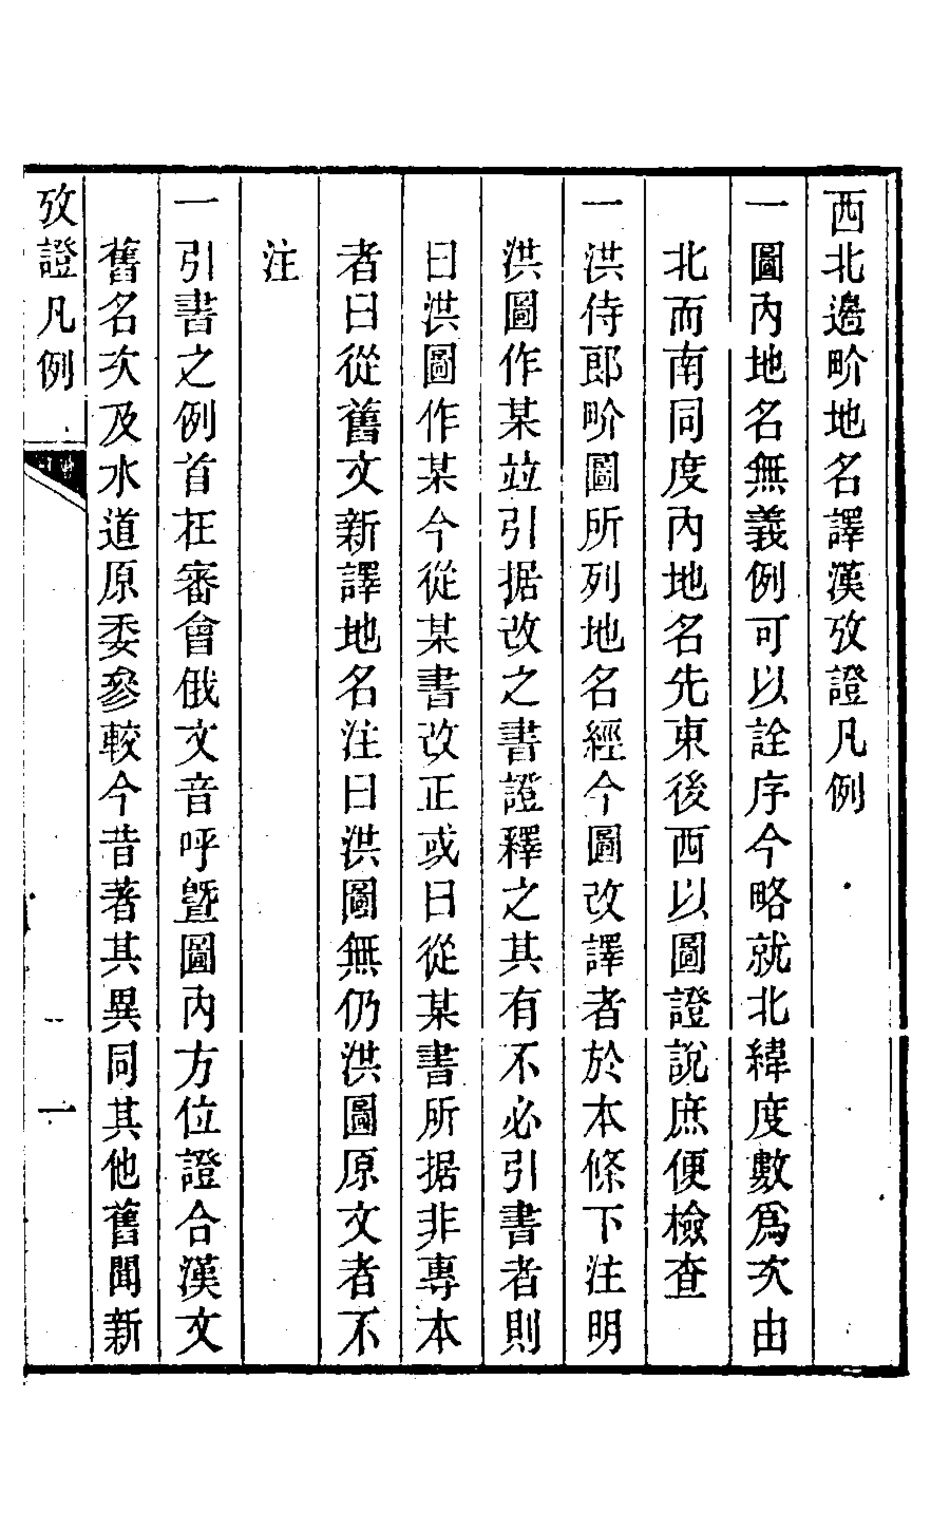 西北邊畍地名譯漢攷證凡例
一圖內地名無義例可以詮序今略就北緯度數爲次由
北而南同度內地名先東後西以圖證說庶便檢查
一洪侍郎畍圖所列地名經今圖改譯者於本條下注明
洪圖作某並引据改之書證釋之其有不必引書者則
曰洪圖作某今從某書改正或曰從某書所据非專本
者曰從舊文新譯地名注曰洪圖無仍洪圖原文者不
注
一引書之例首在審會俄文音呼暨圖內方位證合漢文
舊名次及水道原委參較今昔著其異同其他舊聞新
攷證凡例
一